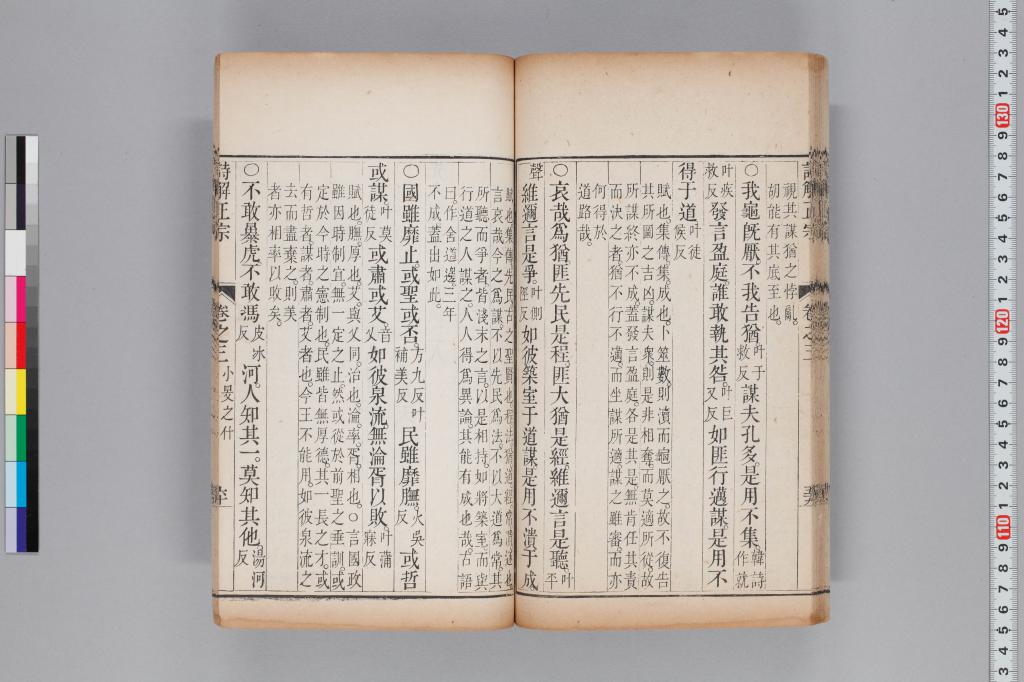 視其謀猶之悖亂
胡能有其底至也。
○我龜旣厭。不我告猶叶于救反謀夫孔多。是用不集韓詩作就
叶疾救反發言盈庭。誰敢執其咎。叶巨又反如匪行邁謀。是用不
得于道叶徒候反
賦也。集傳。集。成也。卜筮數則瀆而龜厭之。故不復告
其所圖之吉凶。謀夫衆。則是非相奪。而莫適所從。故
所謀終亦不成。蓋發言盈庭。各是其是。無肯任其責
而決之者。猶不行不邁。而坐謀所適。謀之雖審。而亦
何得於
道路哉。
○哀哉爲猶。匪先民是程。匪大猶是經。維邇言是聽叶平
聲維邇言是爭。叶側陘反如彼築室于道謀。是用不潰于成
賦也。集傳。先民。古之聖賢也。程。法。猶。道。經。常。潰。遂也。
言哀哉。今之爲謀。不以先民爲法。不以大道爲常。其
所聽而爭者。皆淺末之言。以是相持。如將築室而與
行道之人謀之。人人得爲異論。其能有成也哉。古語
曰。作舍道邊。三年
不成。蓋出如此。
○國雖靡止。或聖或否。方九反叶補美反民雖靡膴。火吳反或哲
或謀。叶莫徒反或肅或艾。音乂如彼泉流。無淪胥以敗。叶蒲寐反
賦也。膴。厚也。艾。與乂同。治也。淪。率。胥。相也。○言國政
雖因時制宜。無一定之止。然或從於前聖之垂訓。或
定於今時之憲制也。民雖皆無厚德。其一長之才。或
有哲者。謀者。肅者。艾者也。今王不能用。如彼泉流之
去而盡棄之。則美
者亦相率以敗矣。
○不敢暴虎。不敢馮皮冰反河。人知其一。莫知其他。湯河反
詩解正宗 卷之三 小旻之什